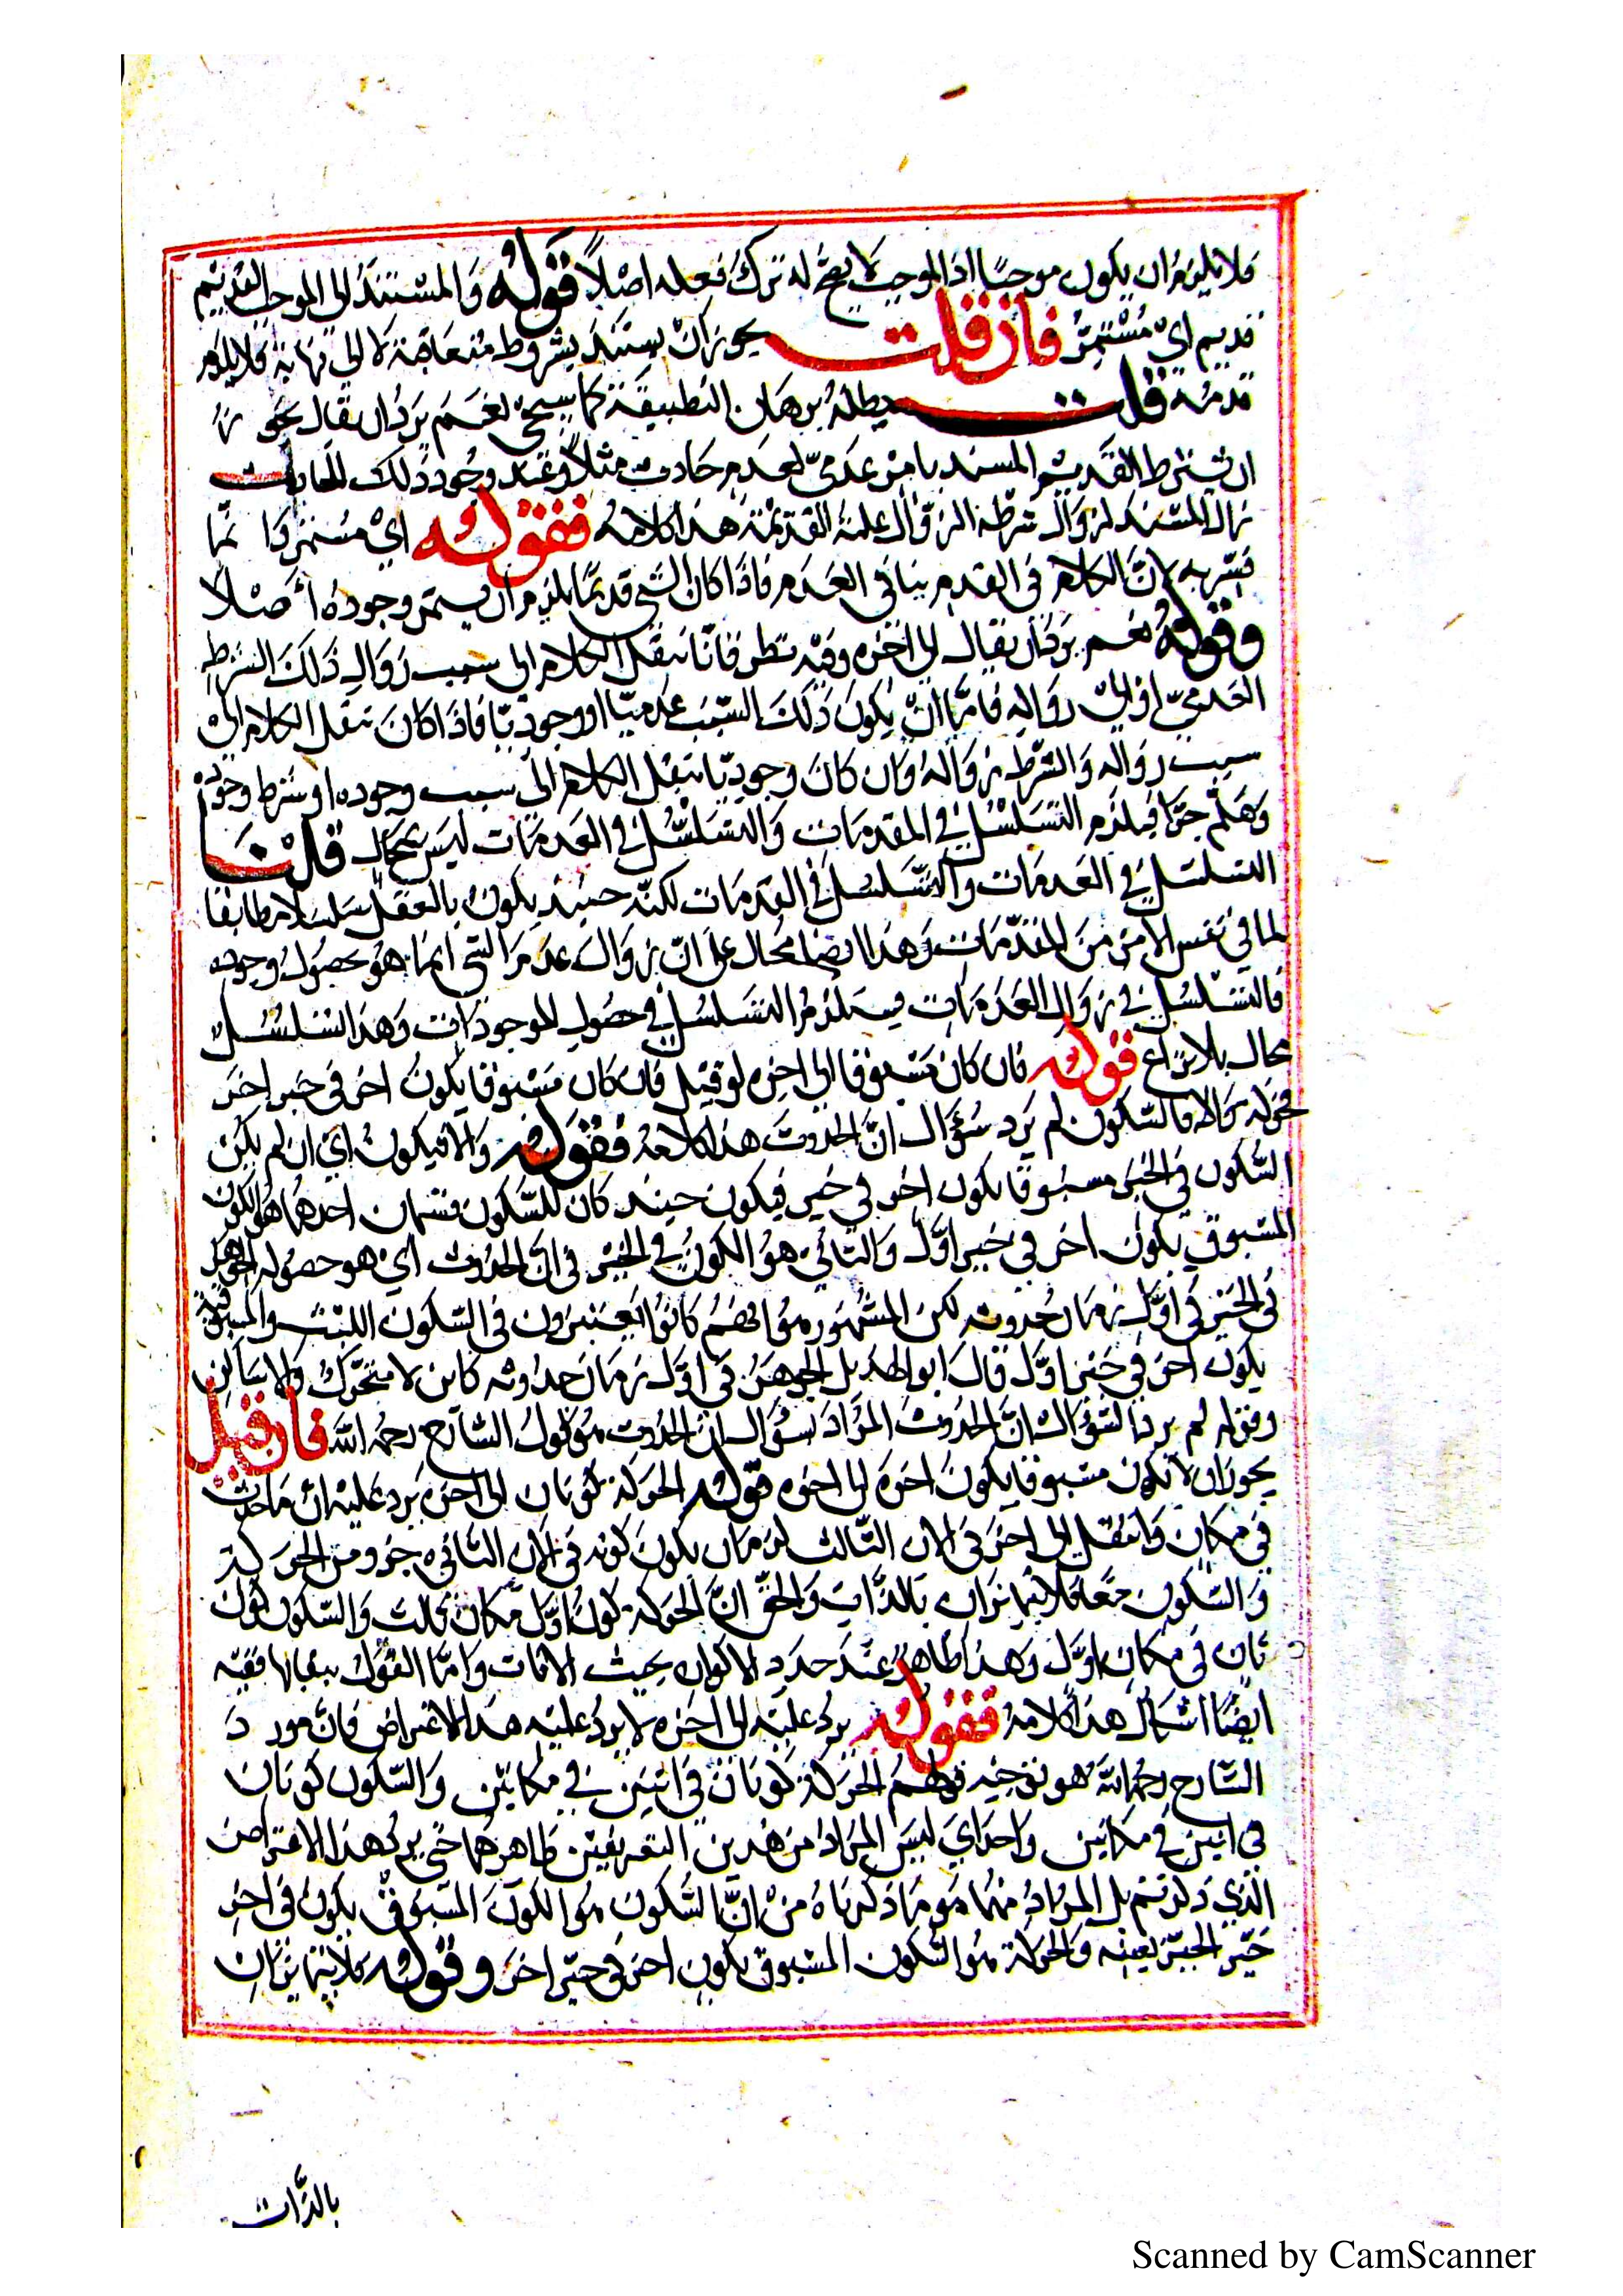 فلا يلزم ان يكون موجبا اذ الموجب لا يصح له ترك فعله اصلاً فقوله وَالمسْتنَدُ الى الموجب القديم
قديم اي مُسْتمرّ فان قلت يجوز ان يستند بشروط متعاقبة لا الى نهاية فلا يلزم
قدمه قلت يبطله برهان التطبيقة كما سيجئ نعَم يَردُ ان يقال يجوز
ان يشترط القديم المستند بامر عدمىّ لعدم حادث مثلاً وعند وجُود ذلك الحادث
زال المستند لزوال شرطه لا لزوال علته القديمة هذا كلامه فقوله اي مُستمر وَانما
فسّر به لانّ الكلام فى القدم ينافى العَدم فاذا كان الشئ قديمًا يلزم ان يستمر وجوده أَصْلاً
وقوله نعم يرد أن يقال الى اخره وفيه نظر فانا ننقل الكلام الى سبب زوال ذلك الشرط
العدمىّ او الى زواله فامّا انْ يكون ذلك السبب عدميّا او وجوديّا فاذا كان ننقل الكلام الى
سبب زواله وَالشرط زوَاله وان كان وجوديّا ننقل الكلام الى سبب وجوده او شرط وجوده
وَهَلُمَّ جَرّا فيلزم التسَلسُل في المقدمات وَالتسَلسُل في العَدمَات ليس بمحال قلنا
التسلسل في العدمات والتسَلسُل في القدمات لكنّه حينئذ يكون بالعقل سلسلا مطابقا
لما في نفس الامر من المقدّمات وَهذا ايضا محال على انّ زوَال عدم الشئ انما هو حصُول وجوده
فالتسَلسُل في زوَال العَدمَات يستلزم التسَلسُل في حصُول الموجودات وَهذا التسَلسُل
محال بلا نزاع قوله فان كان مَسْبوقا الى اخره لو قيل فان كان مسْبوقا بكون اخر في حيز اخر
فحركة والا فالسّكون لم يَرد سُؤال انّ الحدوث هذا كلامه فقوله وَالا فيكون اي ان لم يكن
السّكون في الحيز مسبوقا بكون اخر في حيز فيكون حينئذ كان للسّكون قسمان احدهما هو الكون
المسبوق بكون اخر في حيز اوّل وَالثاني هو الكون في الحيز في ان الحدوث اي هو حصُوله الجوهر
في الحيز في اوّل زمان حُدوثه لكن المشهور هو انهم كانوا يعتبرون في السّكون اللبث والمسبوقية
بكون اخر في حيز اوّل قال ابو الهذيل الجوهر في اوّل زمان حدُوثه كاين لا متحرّك وَلا سَاكن
وقوله لم يرد السّؤال انّ الحدوث المرَاد بسؤال ان الحدوث هو قول الشارح رحمه الله فان قيل
يجوز ان لا تكون مسبوقا بكون اخره الى اخره قوله الحركة كونان الى اخره يَرد عليْه ان مَا حدث
في مكان وَانتقل الى اخر في الان الثالث لزم ان يكون كونه في الان الثانى جزو من الحركة
وَالسّكون معًا فلا يتمايزان بالذّات وَالحقّ انّ الحركة كونُ اوّل مكان ثالث وَالسّكون كونُ
ثان في مكان اوّل وَهذا ظاهرٌ عند حدد الاكوان بحيث الانات وامّا القول ببقائها ففيه
ايضًا اشكال هذا كلامه فقوله يرد عليه الى اخره لا يردُ عليْه هذا الاعتراض فانّ مورد
الشارح رحمه الله هو توجيه قولهم الحَركة كونان في انين في مكانين وَالسّكون كونان
في انين في مكانين واحد اي ليس المرَاد من هذين التعريفين ظاهرهما حتى يرد هذا الاعتراض
الذي ذكرتم بل المرَاد منهما هو ما ذكرناه من انّ السّكون هو الكون المسبوق بكون في اخر
حيّز الحيّز بعينه وَالحركة هو السّكون المسبوق بكون اخر في حيّز اخر وقوله فلا يتمايزان
بالذّات
Scanned by CamScanner